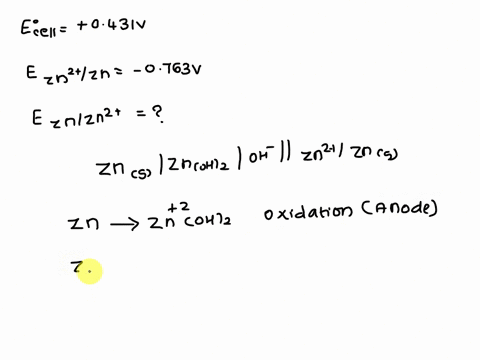 E°cell = +0.431V
E Zn²⁺/Zn = -0.763V
E Zn/Zn²⁺ = ?
Zn(s) | Zn(OH)₂ | OH⁻ || Zn²⁺/Zn(s)
Zn → Zn⁺²(OH)₂ Oxidation (Anode)
Z